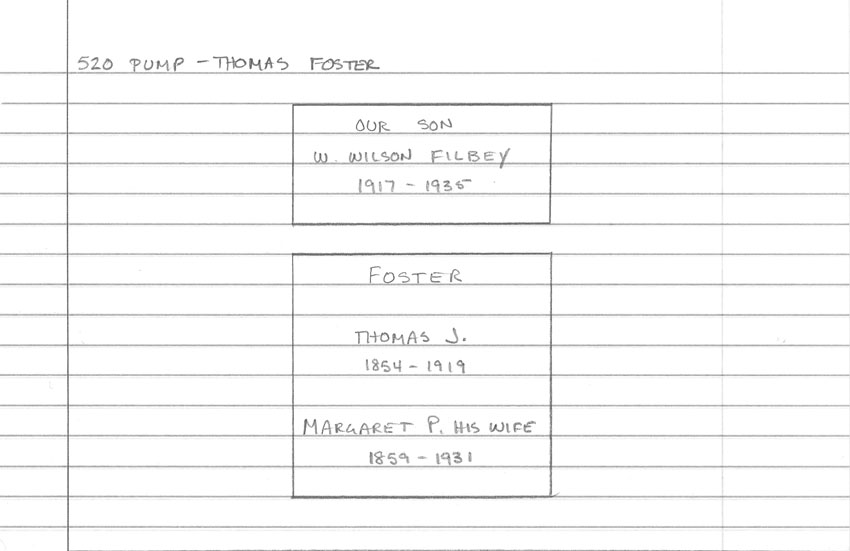 520 PUMP - THOMAS FOSTER
OUR SON
W. WILSON FILBEY
1917 - 1935
FOSTER
THOMAS J.
1854 - 1919
MARGARET P. HIS WIFE
1859 - 1931